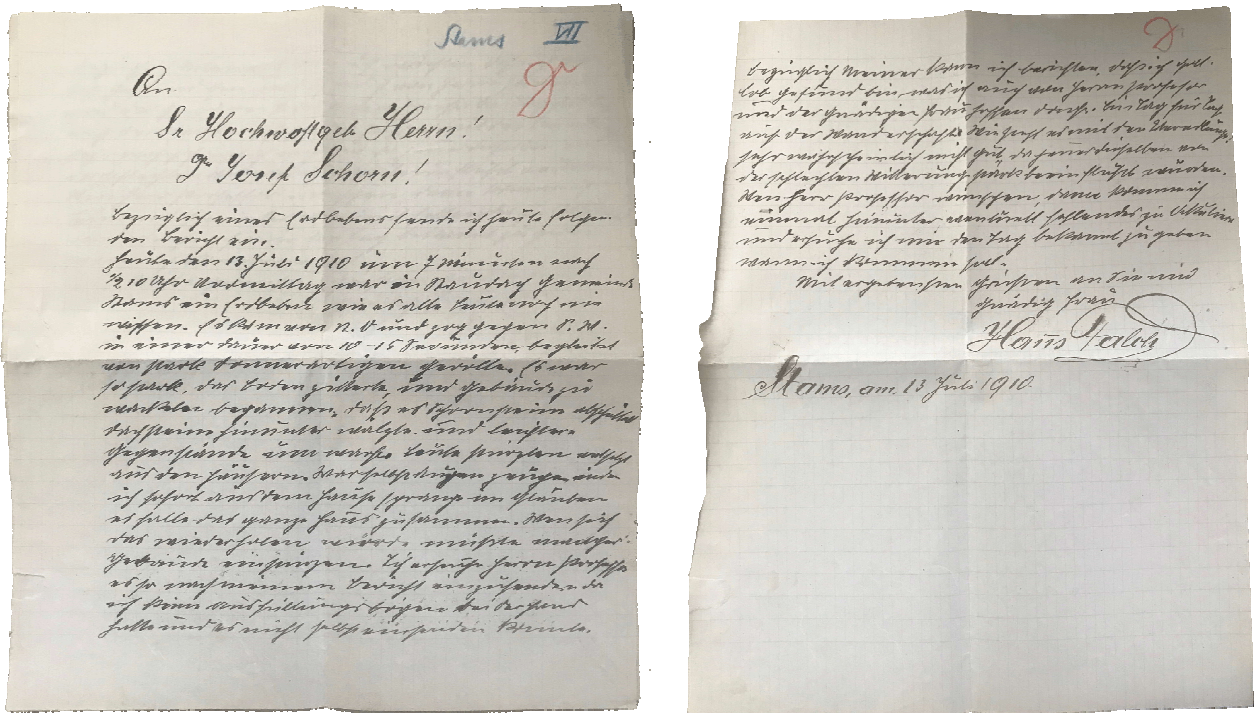 Stams VII
An
Sr Hochwohlgeb Herrn!
Dr Josef Schorn!
Bezüglich eines Erdbebens sende ich heute folgen-
den Bericht ein.
Heute den 13. Juli 1910 um 7 Minuten nach
½10 Uhr Vormittag war in Staudach Gemeinde
Stams ein Erdbeben wie es alle Leute noch nie
wissen. Es kam von N. O und zog gegen S. W.
in einer Dauer von 10-15 Secunden, begleitet
von stark donnerartigen Gerölle. Es war
so stark, das Boden zitterte, und Gebäude zu
wackeln begannen, daß es Schornsteine abschüttelte
Dachsteine hinunter walzte und leichtere
Gegenstände um warf. Leute stürzten entsetzt
aus den Häusern. War selbst Augenzeuge indem
ich sofort aus dem Hause sprang im Glauben
es falle das ganze Haus zusammen. Wen sich
das wiederholen würde müßte mancher
Gebäude einstürzen. Ich ersuche Herrn Professor
es so nach meinem Bericht einzusenden da
ich keine Ausfüllungsbögen bei der Hand
hatte und es nicht selbst einsenden konnte.
Bezüglich Meiner kann ich berichten, daß ich Gott-
lob gesund bin, was ich auch von Herrn Professor
und der gnädigen Frau hoffen darf. Bin Tag für Tag
auf der Wanderschaft. Wie sieht es mit den
sehr wahrscheinlich nicht gut, da dieselben von
der schlechten Witterung stark beeinflußt wurden.
Wen Herr Professor wünschen, dann komme ich
einmal hinunter eventuell fehlendes zu
und ersuche ich mir den Tag bekannt zu geben
wann ich kommen soll.
Mit ergebensten Grüßen an Sie und
gnädig Frau
Hans
Stams, am 13 Juli 1910.